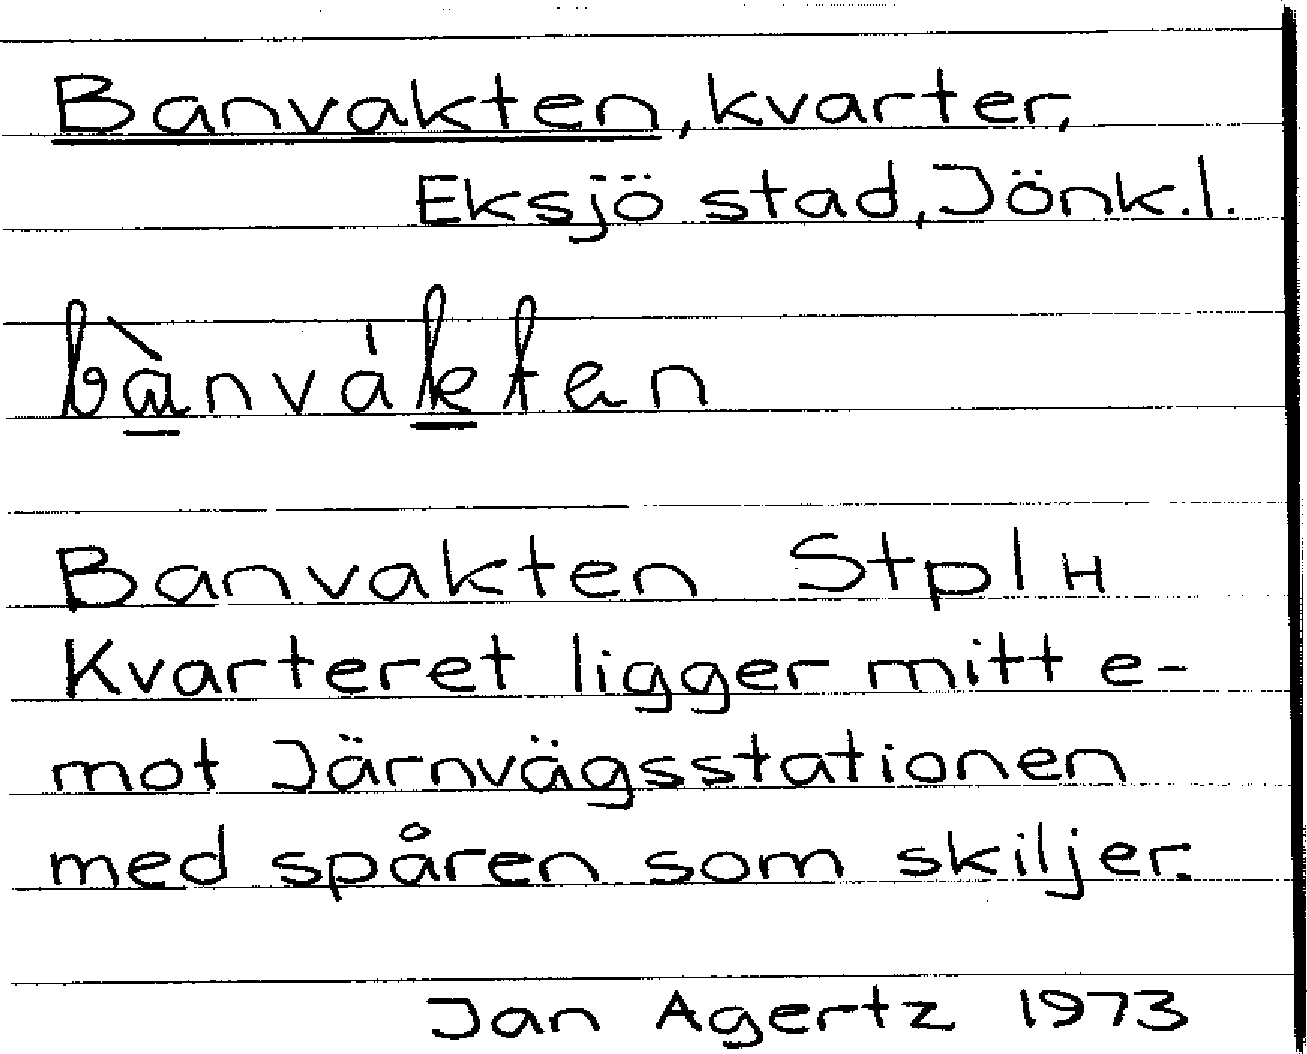 Banvakten, kvarter,
Eksjö stad, Jönk.l.
bànváktan
Banvakten Stpl H
Kvarteret ligger mitt e-
mot Järnvägsstationen
med spåren som skiljer.
Jan Agertz 1973